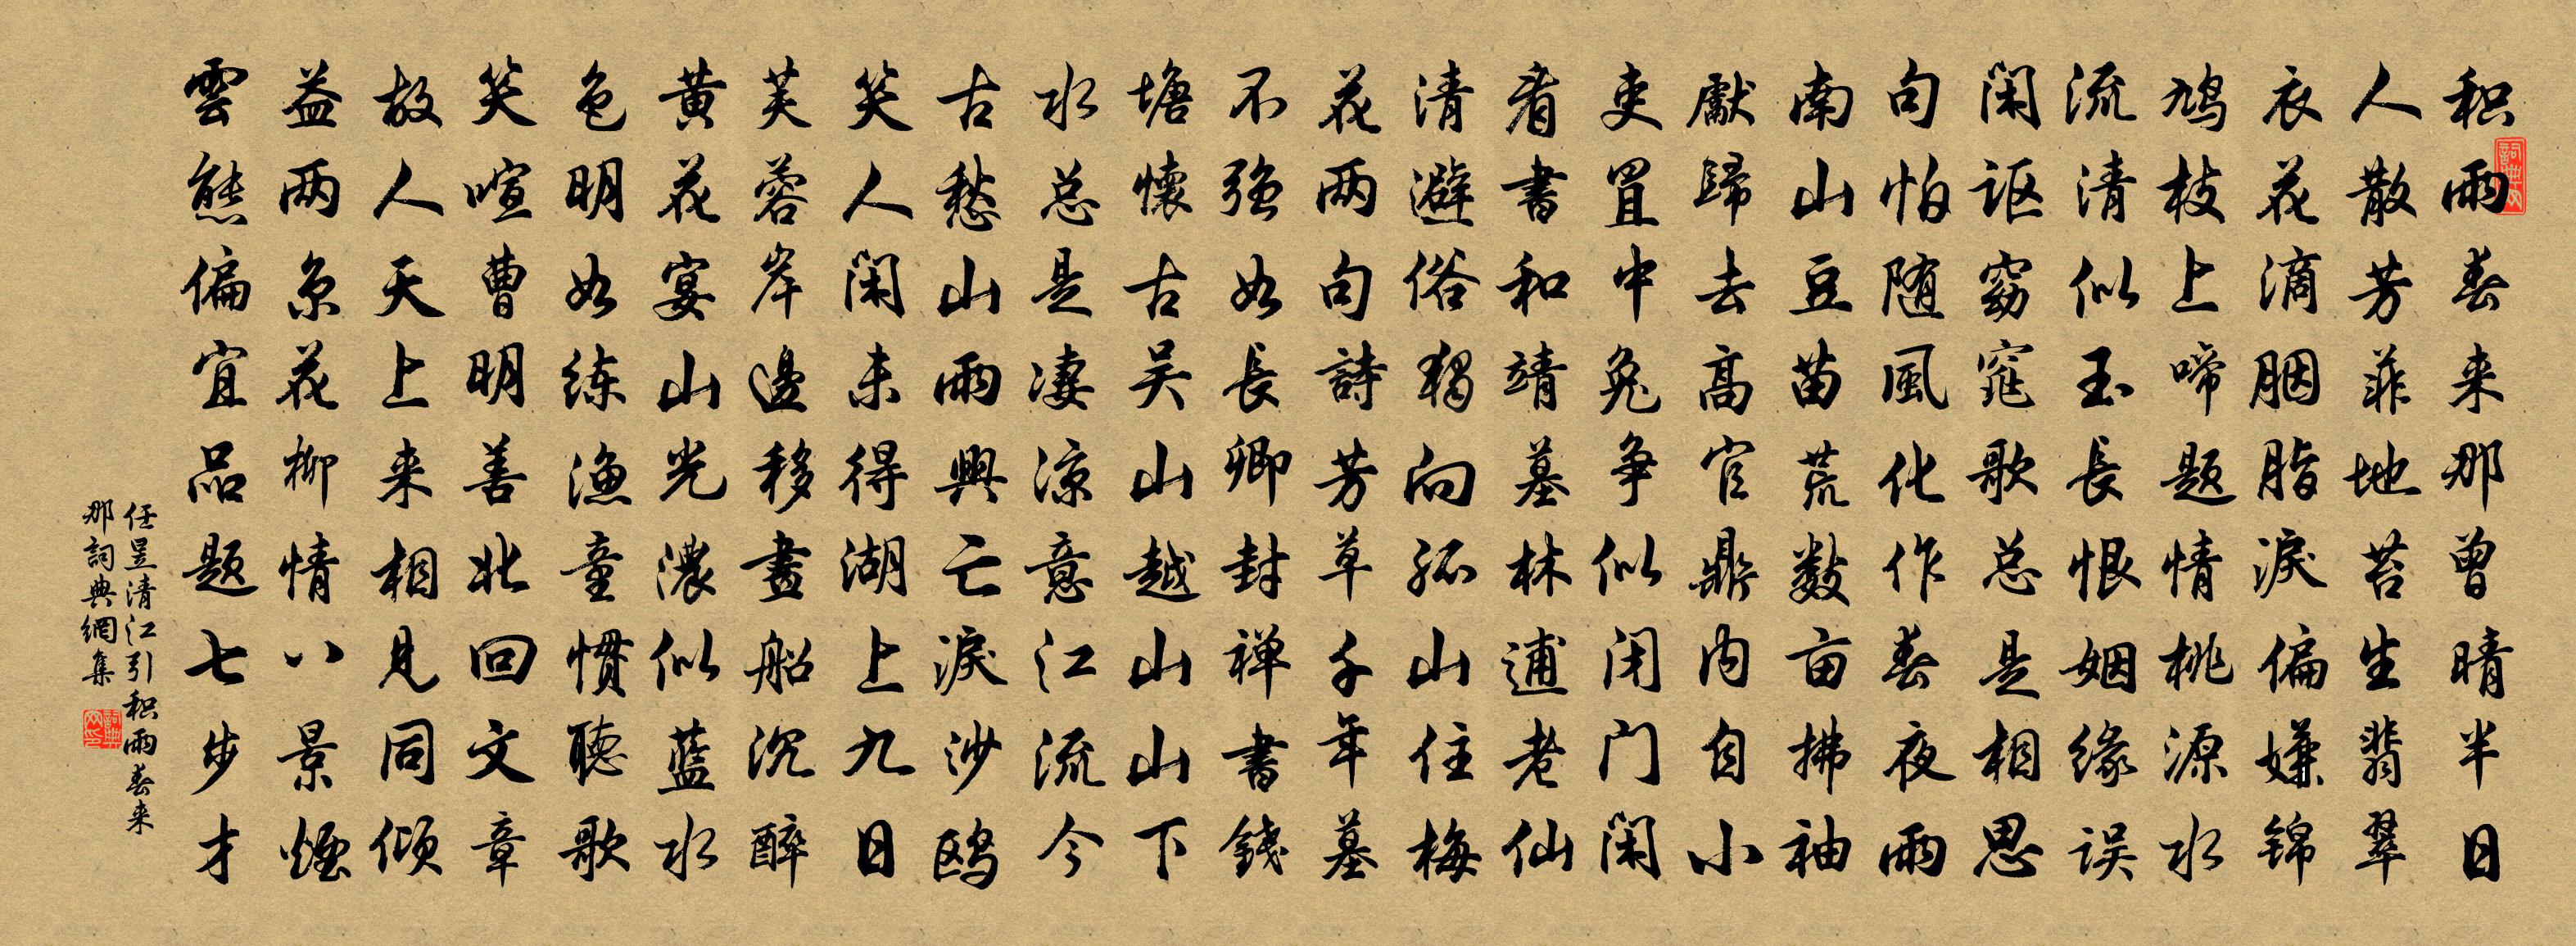 积雨春来那曾晴半日
人散芳菲地苔生翡翠
衣花滴胭脂淚偏嫌锦
鸠枝上啼题情桃源水
流清似玉長恨姻缘误
闲讴窈窕歌总是相思
句怕随風化作春夜雨
南山豆苗荒数亩拂袖
獻歸去高官鼎内自小
吏罝中兔争似闭门闲
看書和靖墓林逋老仙
清避俗獨向孤山住梅
花两句詩芳草千年墓
不强如長卿封禅書錢
塘懷古吴山越山山下
水总是凄凉意江流今
古愁山雨興亡淚沙鸥
笑人闲未得湖上九日
芙蓉岸邊移畫船沉醉
黄花宴山光濃似蓝水
色明如练渔童惯聽歌
笑喧曹明善北回文章
故人天上来相见同倾
益两京花柳情八景煙
雲態偏宜品题七步才
任昱清江引积雨春来
那詞典網集